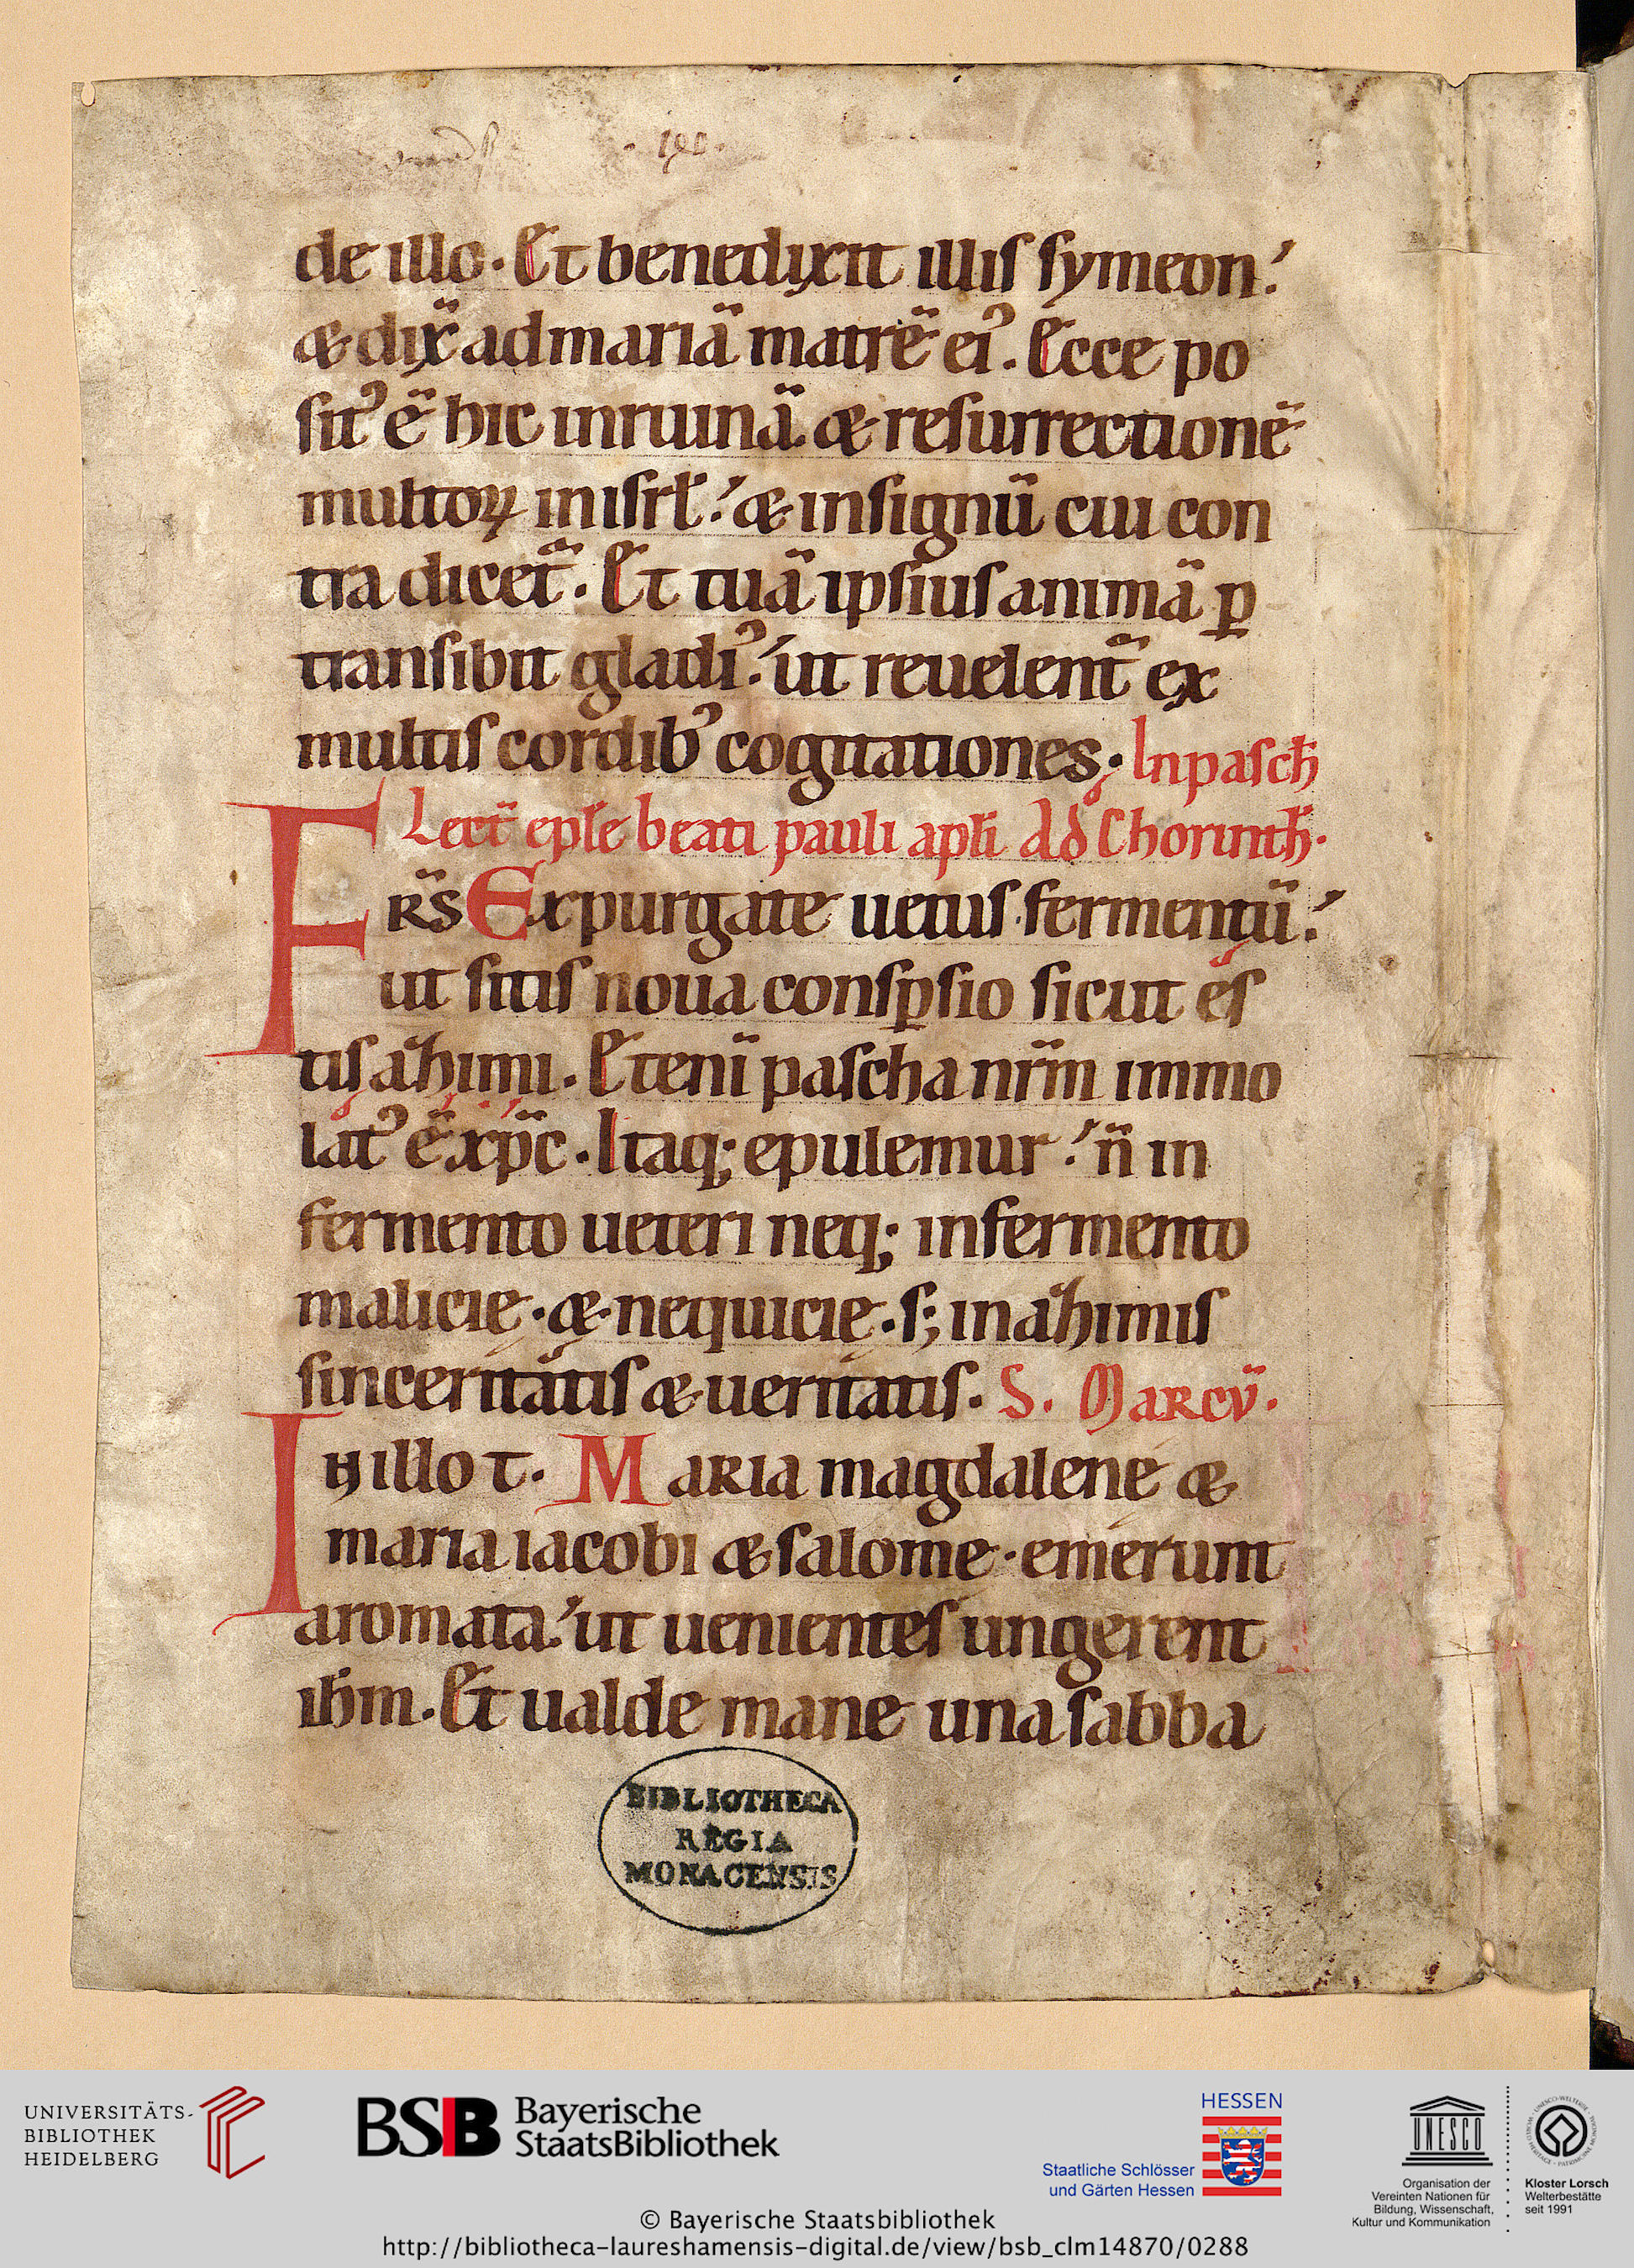 · 190 ·
de illo. Et benedyxit illis symeon:
& dyx̄ ad mariā matrē eiꝰ. Ecce po
sitꝰ ē hic in ruinā. & resurrectionē
multoꝝ in isrl̄: & in signū cui con
tra dicet᷑. Et tuā ipsius animā ꝑ
transibit gladiꝰ: ut reuelent᷑ ex
multis cordibꝰ cogitationes. In pasch̄
Lect̄ epl̄e beati pauli apl̄i ad Chorinth̄.
FRS̄ Expurgate uetus fermentū:
ut sitis noua consꝑsio sicut es
tis ażhimi. Etenī pascha nr̄m immo
latꝰ ē xp̄c. Itaq; epulemur: n̄ in
fermento ueteri neq; in fermento
malicię. & nequicię. s; in ażhimis
sinceritatis & ueritatis. S. Marcū.
IN illo t. Maria magdalene &
maria iacobi & salome. emerunt
aromata: ut uenientes ungerent
ih̄m. Et ualde mane una sabba
BIBLIOTHECA
REGIA
MONACENSIS
UNIVERSITÄTS-
BIBLIOTHEK
HEIDELBERG
BSB Bayerische
StaatsBibliothek
HESSEN
Staatliche Schlösser
und Gärten Hessen
UNESCO
Organisation der
Vereinten Nationen für
Bildung, Wissenschaft,
Kultur und Kommunikation
Kloster Lorsch
Welterbestätte
seit 1991
© Bayerische Staatsbibliothek
http://bibliotheca-laureshamensis-digital.de/view/bsb_clm14870/0288